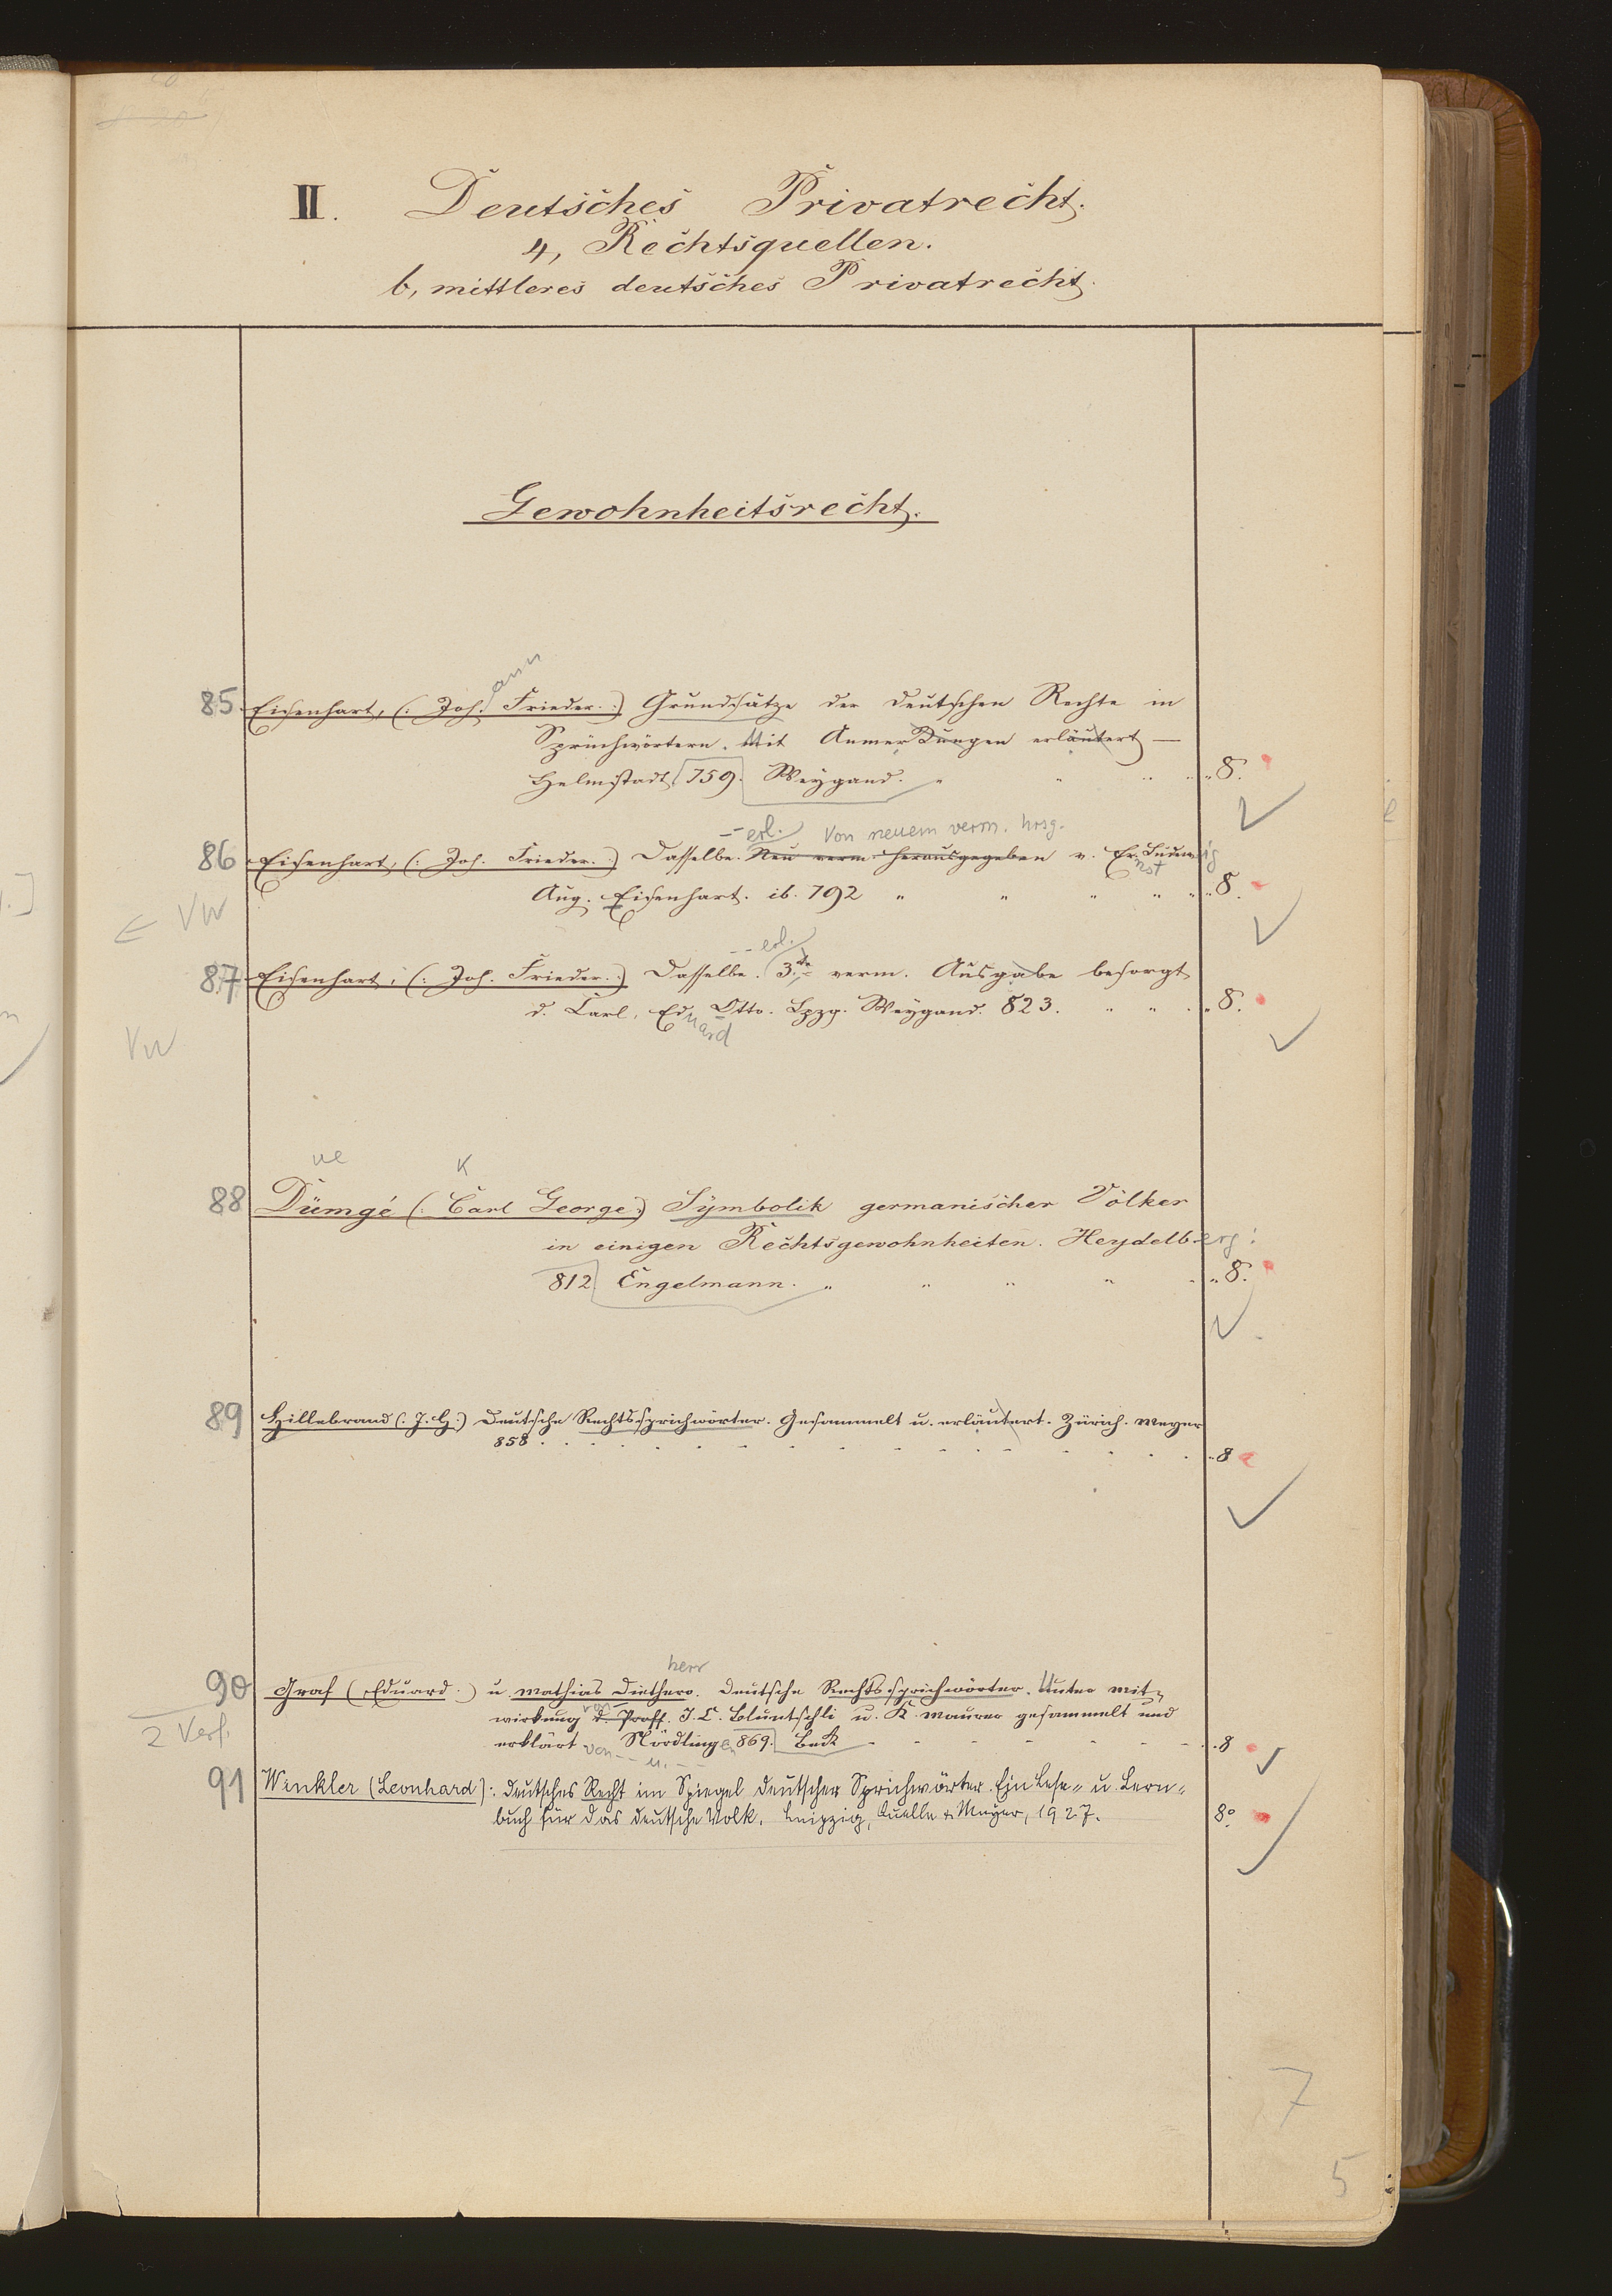 II. Deutsches Privatrecht.
4, Rechtsquellen.
b, mittleres deutsches Privatrecht.
Gewohnheitsrecht.
ann
85 Eisenhart, (: Joh. Frieder. :) Grundsätze der deutschen Rechte in
Sprüchwörtern. Mit Anmerkungen erläutert —
Helmstadt 759. Weygand. „ „ „ „ 8.
-- erl. Von neuem verm. hrsg.
86 Eisenhart, (: Joh. Frieder. :) Dasselbe. Neu verm. herausgegeben v. Ernst Ludewig
Aug. Eisenhart. ib. 792 „ „ „ „ „ 8.
← VW
-- erl.
87 Eisenhart, (: Joh. Frieder. :) Dasselbe. 3.te verm. Ausgabe besorgt
d. Carl, Eduard Otto. Lpzg. Weygand. 823. „ „ „ 8.
VW
ue K
88 Dümgé (: Carl George :) Symbolik germanischer Völker
in einigen Rechtsgewohnheiten. Heydelberg:
812. Engelmann. „ „ „ „ „ 8.
89 Hillebrand (: J. H. :) Deutsche Rechtssprichwörter. Gesammelt u. erläutert. Zürich. Meyer
858 . . . . . „ 8
herr
90 Graf (Eduard.) u. Mathias Diethero. Deutsche Rechtssprichwörter. Unter Mit-
wirkung von d. Proff. J. C. Bluntschli u. K. Maurer gesammelt und
2 Verf. erklärt von -- u. -- Nördlingen 869. Beck - - - - 8
91 Winkler (Leonhard): Deutsches Recht im Spiegel deutscher Sprichwörter. Ein Lese- u. Lern-
buch für das deutsche Volk. Leipzig, Quelle & Meyer, 1927. 8°.
7
5